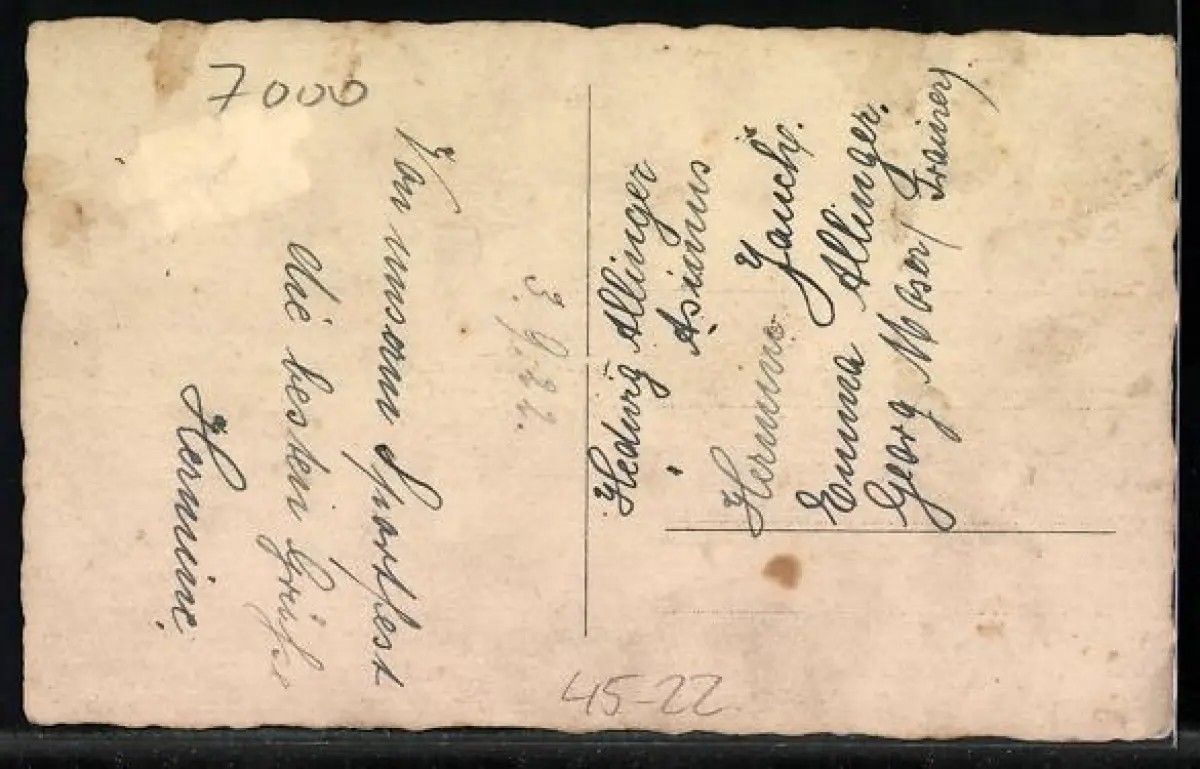 7000
Von unserm Sportfest
die besten Grüße
Hermine.
3.9.22.
Hedwig Allinger
Asimus
Hermine Jauch.
Emma Allinger.
Georg Moser (Trainer)
45-22